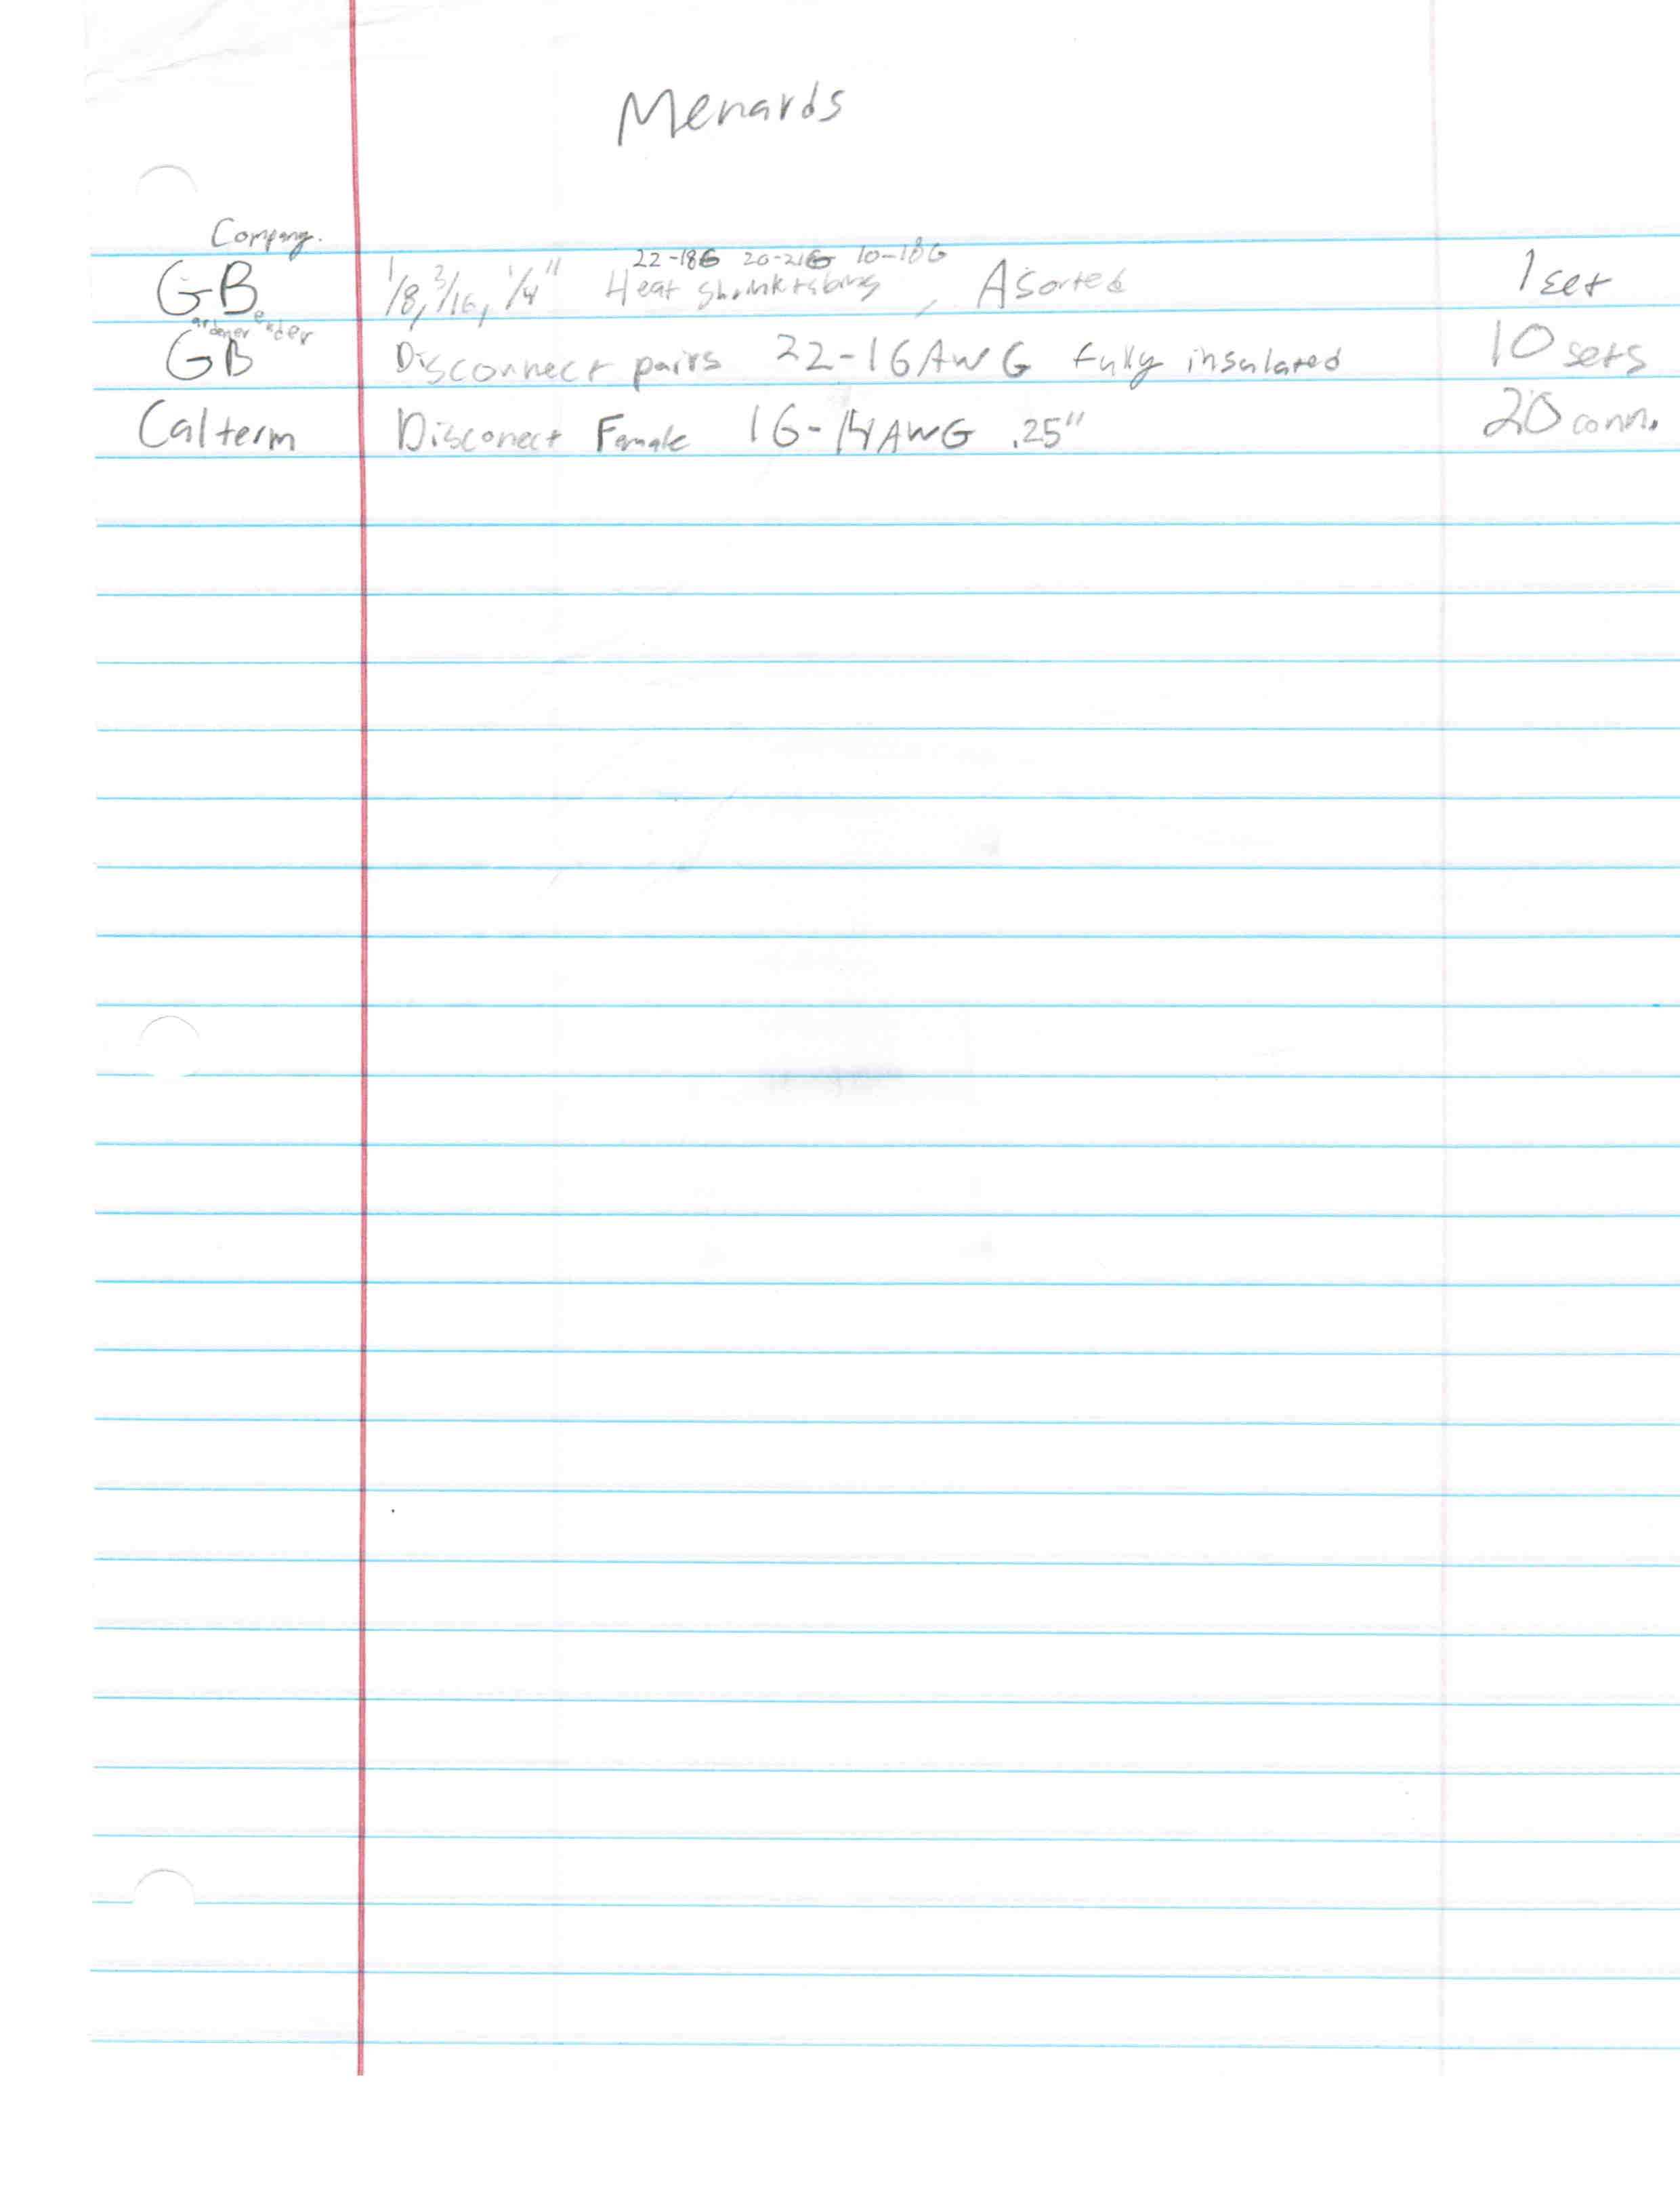 Menards
Company.
22-18G 20-21G 10-18G
GB 1/8, 3/16, 1/4" Heat shrink tubing, Asorted 1 set
ardener ender
GB Disconnect pairs 22-16 AWG fully insulated 10 sets
Calterm Disconect Female 16-14 AWG .25" 20 conn.